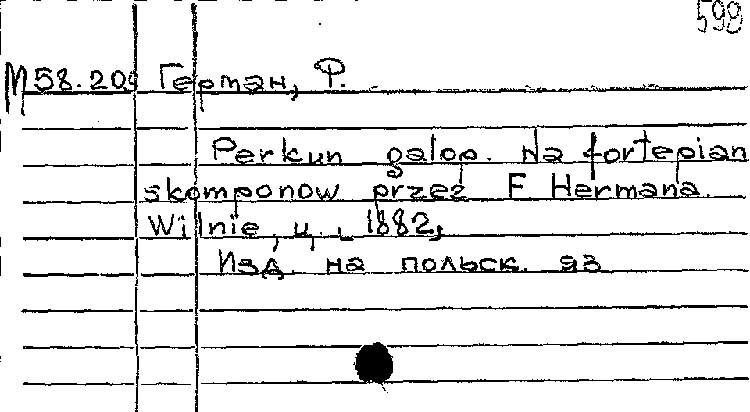 598
М 58.209 Герман, Ф.
Perkun galop. Na fortepian
skomponow przez F Hermana.
Wilnie, ц., 1882,
Изд. на польск. яз